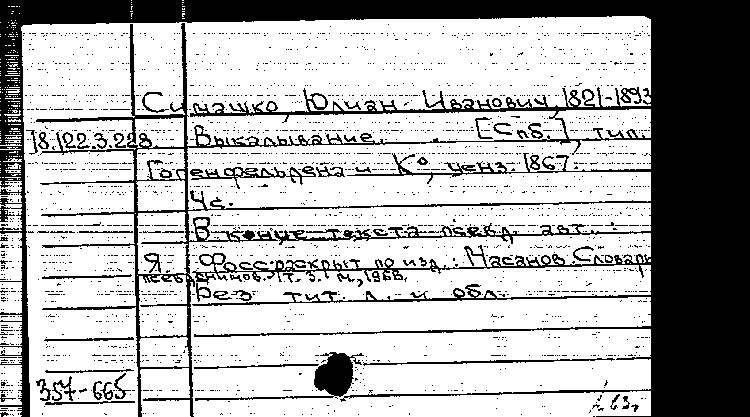 Симашко, Юлиан Иванович, 1821-1893
18.122.3.228. Выкалывание. [Спб.], тип.
Гогенфельдена и К°, ценз. 1867.
4с.
В конце текста псевд. авт.:
Я. Фос. раскрыт по изд.: Масанов. Словарь
псевдонимов. Т. 3. М., 1958.
Без тит. л. и обл.
357-665